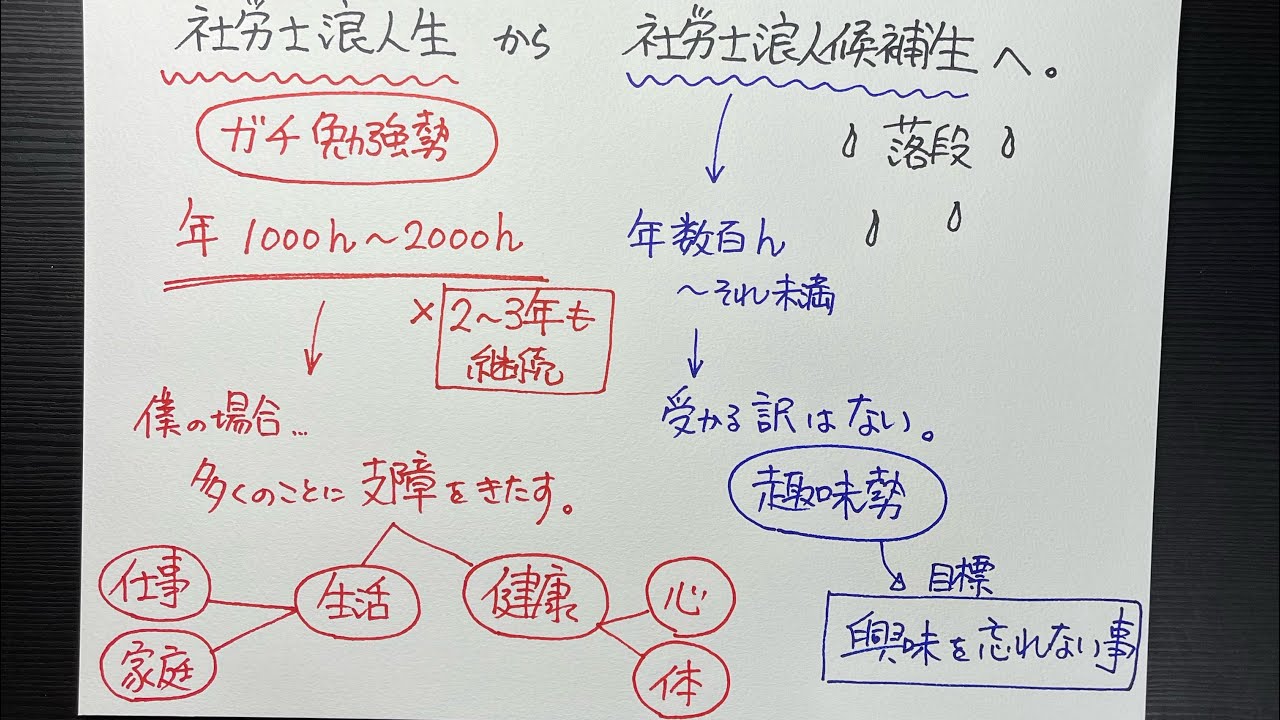 社労士浪人生 から 社労士浪人候補生へ。
ガチ勉強勢
年 1000h〜2000h
× 2〜3年も
継続
僕の場合...
多くのことに支障をきたす。
仕事
家庭
生活
健康
心
体
落段
年数百h
〜それ未満
受かる訳はない。
趣味勢
目標
興味を忘れない事